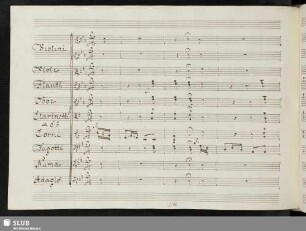 Violini
Viole
Flauti
Oboe
Clarinetti
Corni
Fagotti
Numa
Adagio
SLUB
Wir führen Wissen.